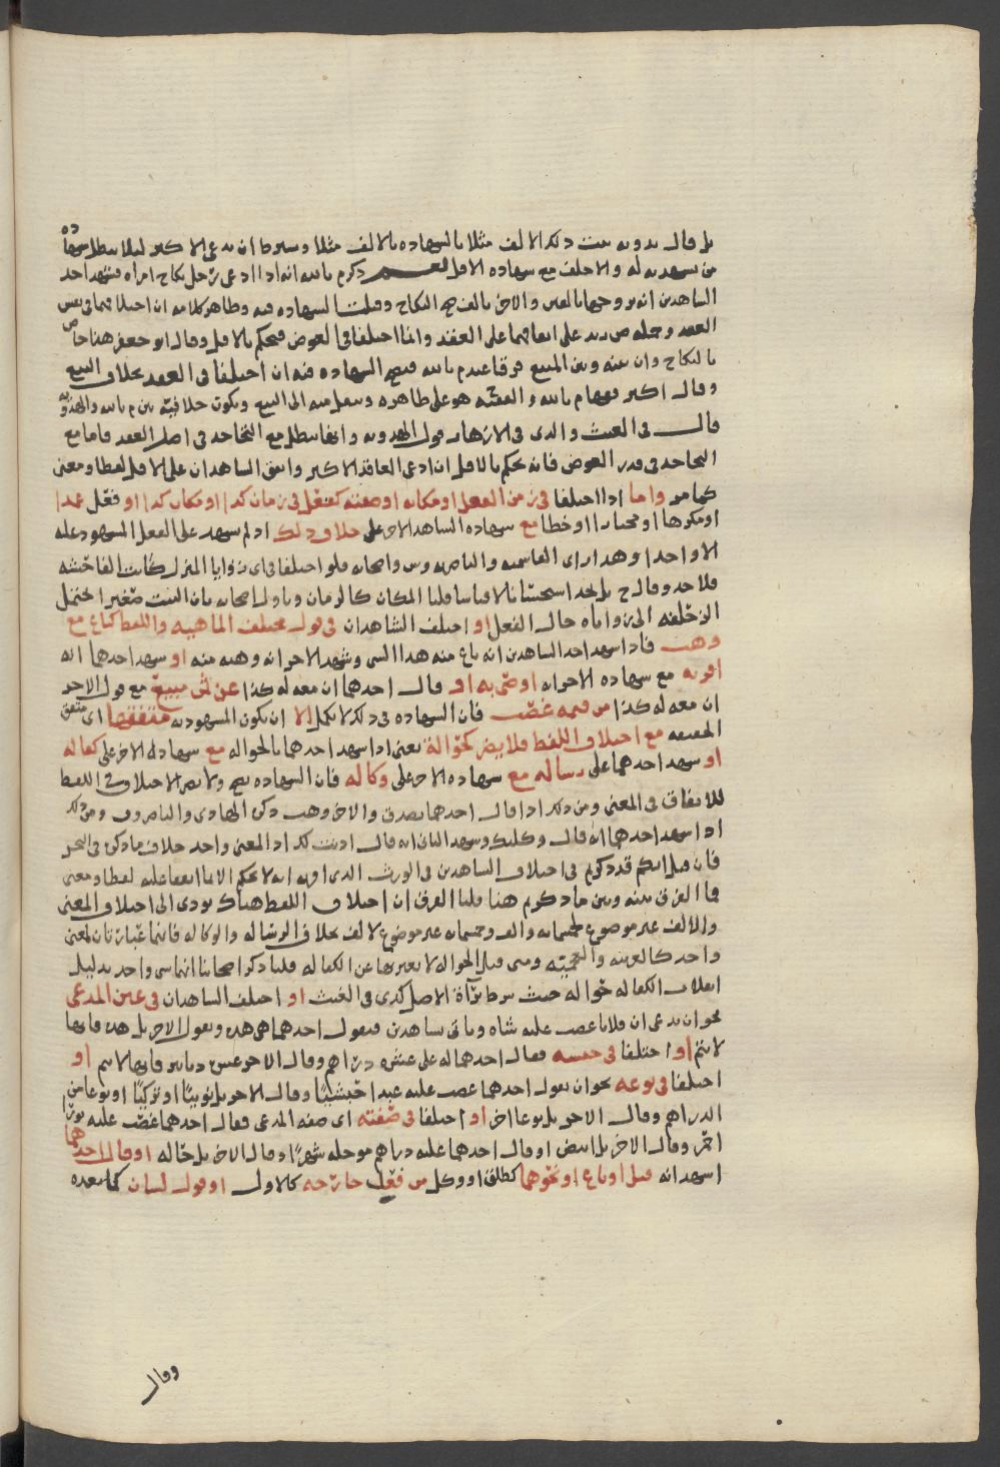 بل قال يدونه يثبت ذلك الالف مثلا بالشهاده بالالف مثلا وشرط ان يدعي الاكثر لئلا يبطل شهاده
من شهد به له والاحلف مع شهاده الاقل ذكرم بالله انه اذا ادعى رجل نكاح امراه فشهد احد
الشاهدين انه تزوجها بالفين والاخر بالف صح النكاح وقبلت الشهاده فيه وظاهر كلامه ان اختلافهما في نفس
العقد وحمله ص زيد على اتفاقهما على العقد وانما اختلفا في العوض فيحكم بالاقل وقال ابو جعفر هذا خاص
بالنكاح وان بينه وبين المبيع فرقا عند م بالله فيصح الشهاده فيه ان اختلفا في العقد بخلاف البيع
وقال اكثر فهما م بالله والفقيه ح هو على ظاهره وينقل منه الى البيع ويكون خلافيه بين م بالله والهدويه
قال في الغيث والذي في الازهار قول الهدويه وانها تبطل مع التجاحد في اصل العقد فاما مع
التجاحد في قدر العوض فانه يحكم بالاقل ان ادعى العاقد الاكثر واتفق الشاهدان على الاقل لفظا ومعنى
كما مر واما اذا اختلفا في زمن الفعل او مكانه او صفته كفعل في زمان كذا او مكان كذا او فعل عمدا
او مكرها او مختارا او خطا مع شهاده الشاهد الاخر على خلاف ذلك اذ لم يشهد على الفعل المشهود عليه
الا واحد وهذا راي القاسميه والناصريه وش واصحابه فلو اختلفا في اي زوايا المنزل كانت الفاحشه
فلا حد وقال ح بل يحد استحسانا لا قياسا قلنا المكان كالزمان وتاول اصحابه بان البيت صغيرا يحتمل
الزحلفه الى زواياه حال الفعل او اختلف الشاهدان في قول مختلف الماهيه واللفظ كباع مع
وهب فاذا شهد احد الشاهدين انه باع منه هذا الشي وشهد الاخر انه وهبه منه او شهد احدهما انه
اقر به مع شهاده الاخر انه اوصى به او قال احدهما ان معه له كذا عن ثمن مبيع مع قول الاخر
ان معه له كذا من قيمه غصب فان الشهاده في ذلك لا تكمل الا ان يكون المشهود به متفقها اي متفق
الحقيقه مع اختلاف اللفظ فلا يضر كحوالة يعني اذا شهد احدهما بالحواله مع شهادة الاخر على كفاله
او شهد احدهما على رساله مع شهاده الاخر على وكاله فان الشهاده تصح ولا يضر الاختلاف في اللفظ
للاتفاق في المعنى ومن ذلك اذا قال احدهما تصدق والاخر وهب ذكره الهادي والناصر وف ومن ذلك
اذا شهد احدهما انه قال وكلتك وشهد الثاني انه قال اذنت لك اذ المعنى واحد خلاف ما ذكره في البحر
فان قيل انكم قد ذكرتم في اختلاف الشاهدين في الورث الذي اقر به انه لا يحكم الا بما اتفقا عليه لفظا ومعنى
فما الفرق بينه وبين ما ذكرتم هنا قلنا الفرق ان اختلاف اللفظ هناك يودي الى اختلاف المعنى
والالف غير موضوع لخمسمائه والف وخمسمائه غير موضوع لالف بخلاف الرساله والوكاله فانهما عبارتان لمعنى
واحد كالعربيه والعجميه ومتى قيل الحواله لا يعبر بها عن الكفاله قلنا ذكر اصحابنا انهما شي واحد بدليل
انقلاب الكفاله حواله حيث شرط براة الاصل كذي في الغيث او اختلف الشاهدان في عين المدعى
نحو ان يدعي ان فلانا غصب عليه شاه وياتي بشاهدين فيقول احدهما هي هذه ويقول الاخر بل هذه فانها
لا تتم او اختلفا في جنسه فقال احدهما له على عشره دراهم وقال الاخر عشره دنانير فانها لا تتم او
اختلفا في نوعه نحو ان يقول احدهما غصب عليه عبدا حبشيا وقال الاخر بل نوبيا او تركيا او نوعا من
الدراهم وقال الاخر بل نوعا اخر او اختلفا في صفته اي صفه المدعى فقال احدهما غصب عليه ثورا
احمر وقال الاخر بل ابيض او قال احدهما عليه دراهم موجله شهرا وقال الاخر بل حاله او قال احدهما
اشهد انه قتل او باع او نحوهما كطلق او وكل من فعل جارحه كالاول او قول لسان كما بعده
وقال